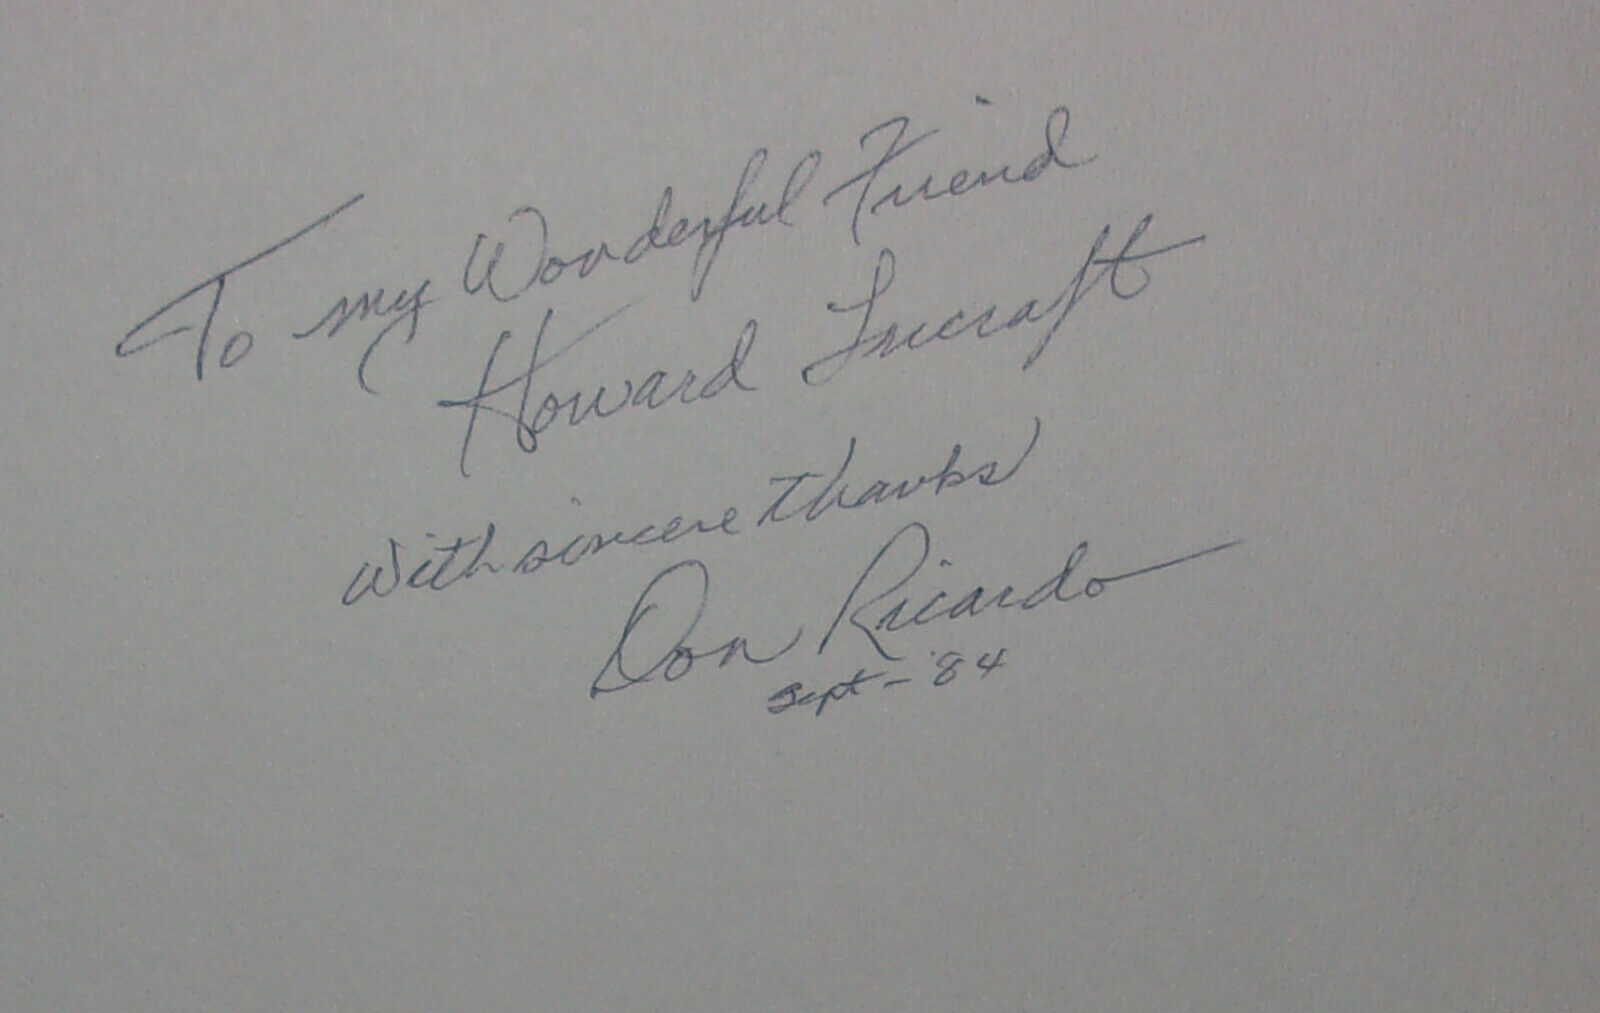 To my Wonderful Friend
Howard Lucraft
With sincere thanks
Don Ricardo
Sept - '84